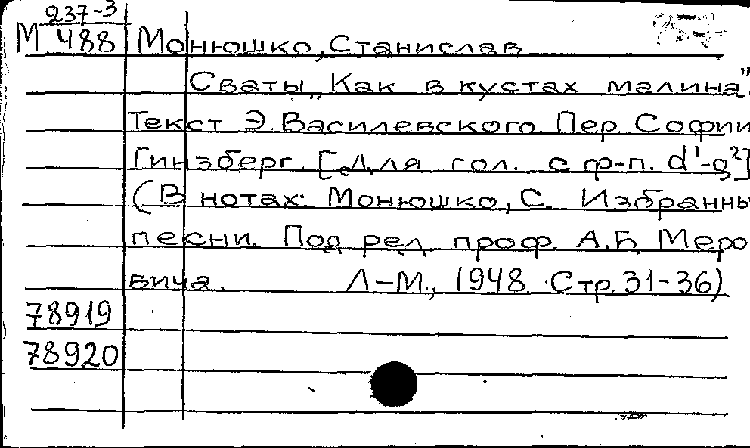 237-3
М 488 Монюшко, Станислав
Сваты „Как в кустах малина".
Текст Э. Василевского. Пер. Софии
Гинзберг. [Для гол. с ф-п. d¹-g²]
(В нотах: Монюшко, С. Избранны
песни. Под ред. проф. А.Б. Меро
вича. Л-М., 1948. Стр. 31-36)
78919
78920